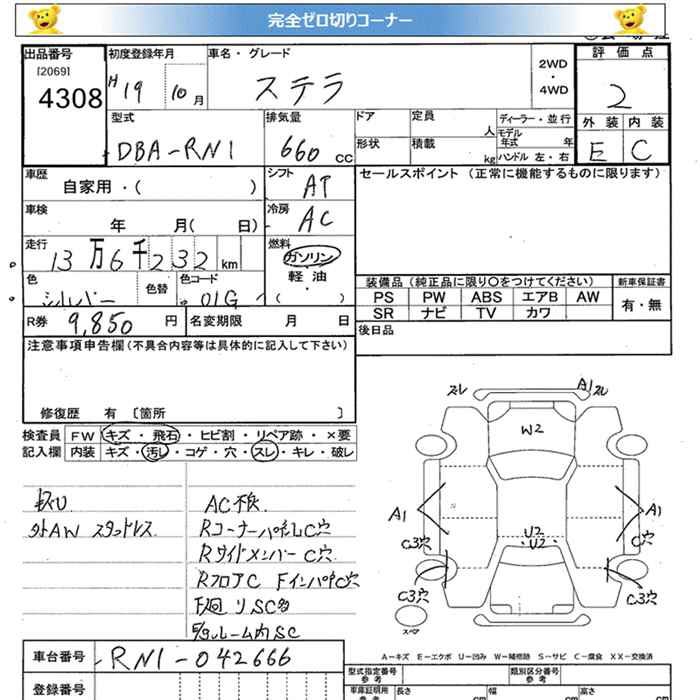 完全ゼロ切りコーナー
出品番号 初度登録年月 車名・グレード 評価点
[2069]
4308 H19 10月 ステラ 2WD・4WD 2
外装 内装
E C
型式 排気量 ドア 定員 人 ディーラー・並行
DBA-RN1 660cc 形状 積載 kg モデル年式 年
ハンドル 左・右
車歴 シフト セールスポイント (正常に機能するものに限ります)
自家用・( ) AT
車検 冷房
年 月( 日) AC
走行 燃料
13万6千232km ガソリン
軽油
色 色替 色コード ・
シルバー 01G ( )
装備品 (純正品に限り○をつけてください) 新車保証書
PS PW ABS エアB AW 有・無
SR ナビ TV カワ
R券 9,850円 名変期限 月 日 後日品
注意事項申告欄(不具合内容等は具体的に記入して下さい)
修復歴 有 〔箇所 〕
検査員 FW キズ・飛石・ヒビ割・リペア跡・×要
記入欄 内装 キズ・汚レ・コゲ・穴・スレ・キレ・破レ
AC不良
外AW スタッドレス RコーナーパネルC穴
Rサイドメンバー C穴
RフロアC FインパネC穴
ルーム内SC
ズレ A1 ズレ
W2
A1 A1
U2
U2
C3穴 C穴
C3穴 C3穴
スペア
A-キズ E-エクボ U-凹み W-補修跡 S-サビ C-腐食 XX-交換済
車台番号 RN1-042666
型式指定番号 参考 類別区分番号 参考
登録番号 車庫証明用 参考 長さ cm 幅 cm 高さ cm